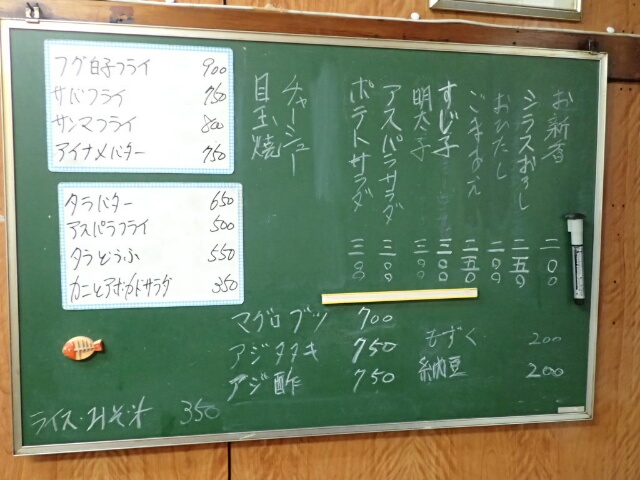 フグ白子フライ 900
サバフライ 750
サンマフライ 800
アイナメバター 750
タラバター 650
アスパラフライ 500
タラどうふ 550
カニとアボカドサラダ 350
お新香 二〇〇
シラスおろし 二五〇
おひたし 二〇〇
ごまあえ 二五〇
すじ子 三〇〇
明太子 三〇〇
アスパラサラダ 三〇〇
ポテトサラダ 三〇〇
チャーシュー
目玉焼
マグロブツ 700
アジタタキ 750
アジ酢 750
もずく 200
納豆 200
ライス・みそ汁 350